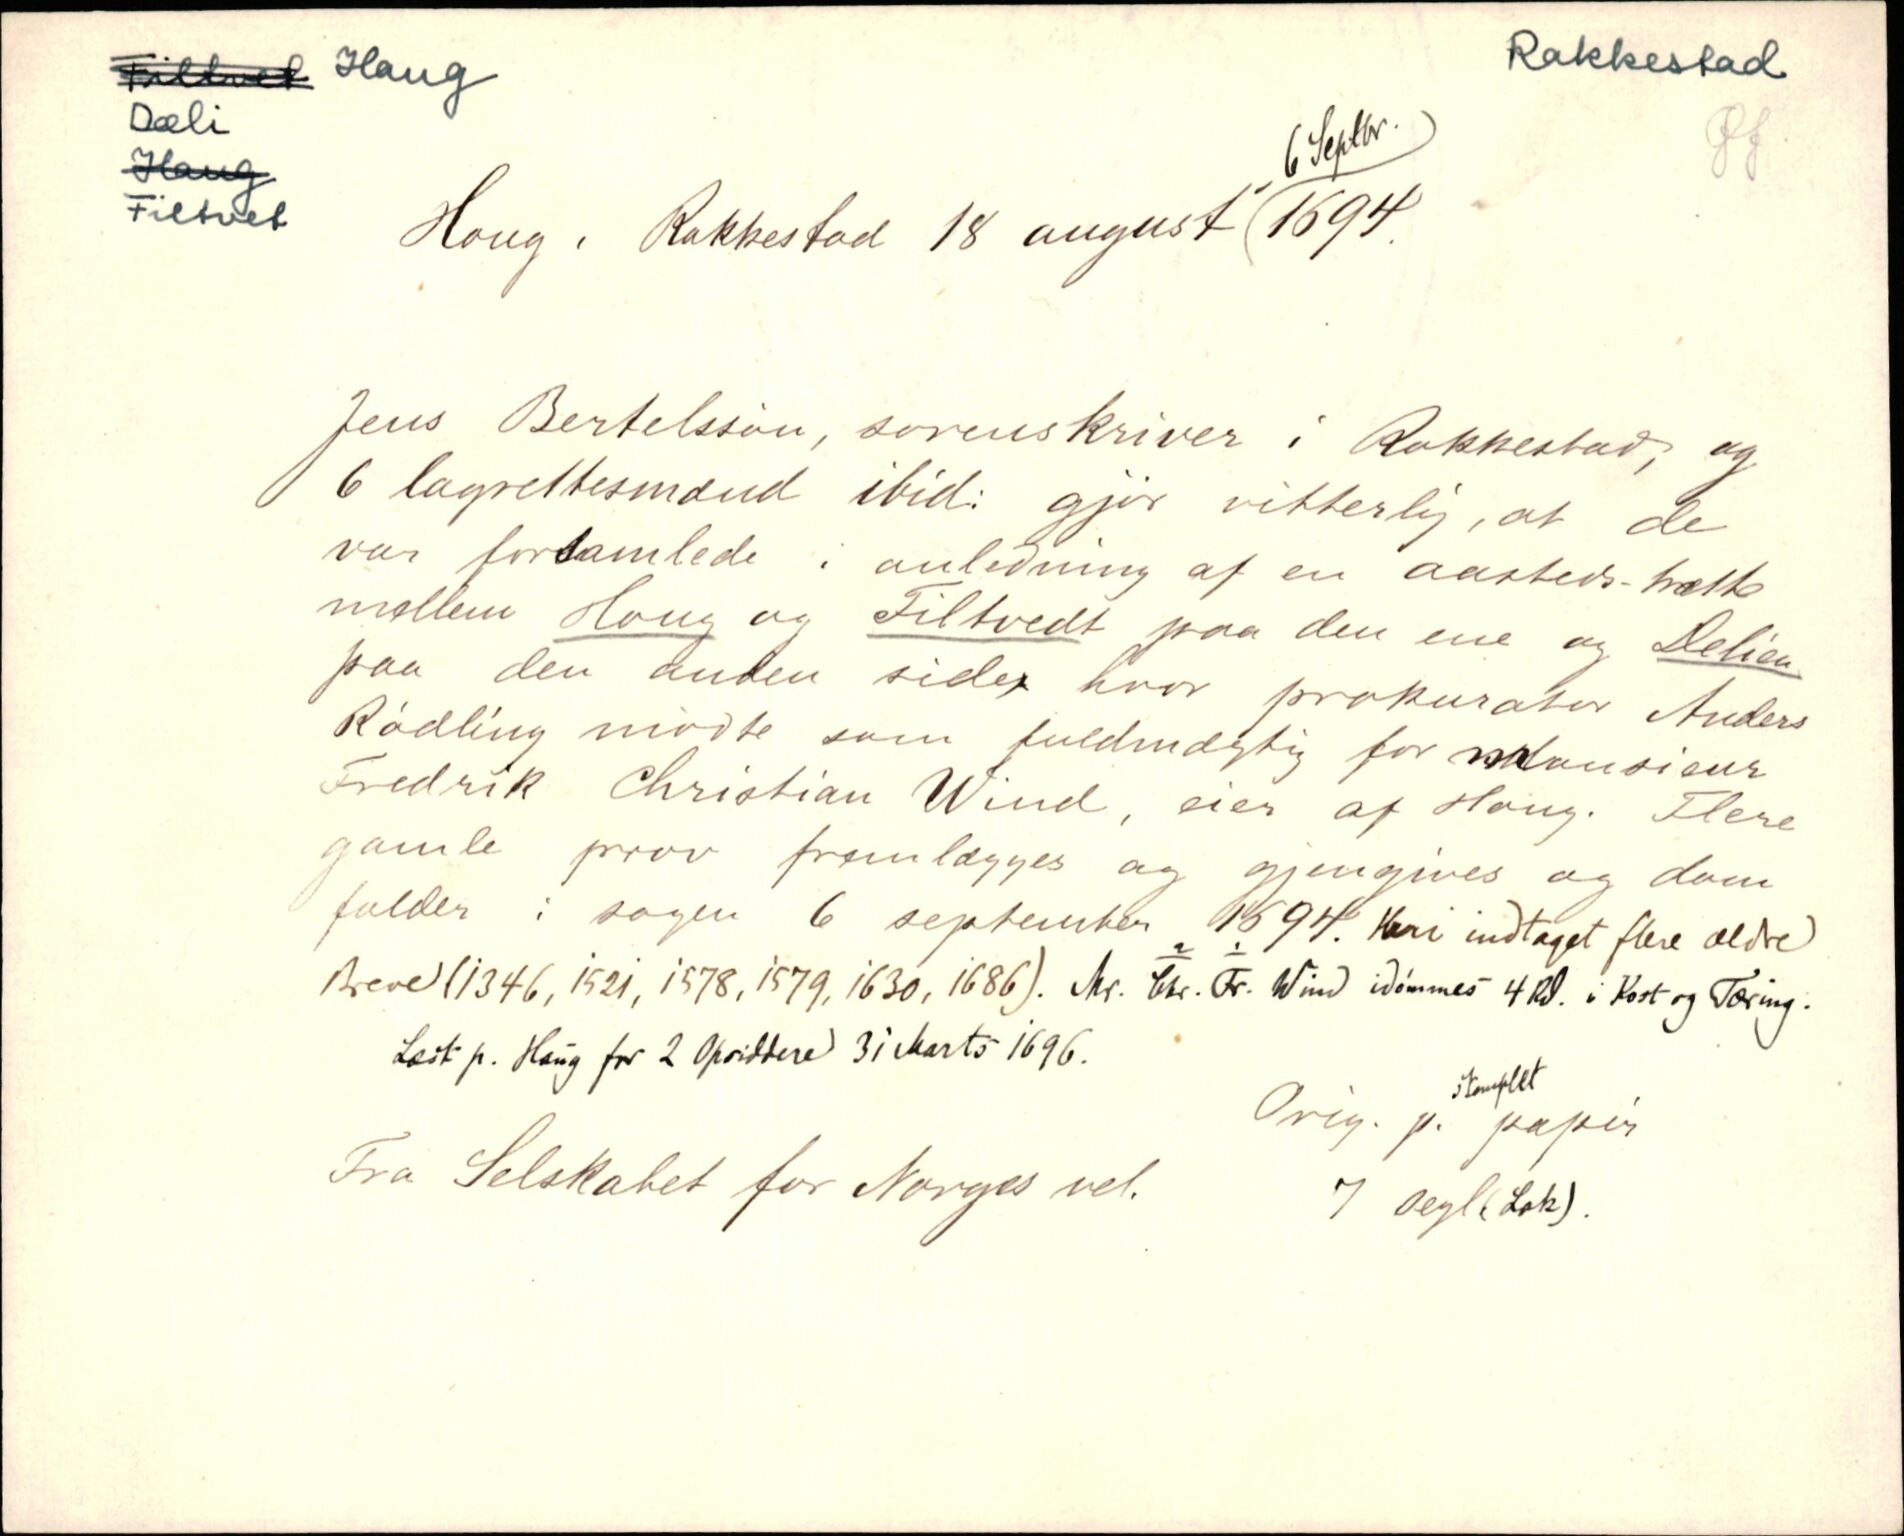 Filtvet Haug
Rakkestad
Dæli
Haug
Filtvet
6 Septbr.
Houg i Rakkestad 18 august 1694.
Jens Bertelssøn, sorenskriver i Rakkestad, og
6 lagrettesmænd ibid: gjør vitterlig, at de
var forsamlede i anledning af en aasteds-trætte
mellem Houg og Filtvedt paa den ene og Delien
paa den anden side, hvor prokurator Anders
Rødling mødte som fuldmægtig for monsieur
Fredrik Christian Wind, eier af Houg. Flere
gamle prov fremlægges og gjengives og dom
falder i sagen 6 september 1694. Heri indtaget flere ældre
Breve (1346, 1521, 1578, 1579, 1630, 1686). Mr. Chr. Fr. Wind idømmes 4 Rd. i Kost og Tæring.
Læst p. Haug for 2 Opsiddere 31 Marts 1696.
stemplet
Orig. p. papir
Fra Selskabet for Norges vel.
7 segl (Lak).